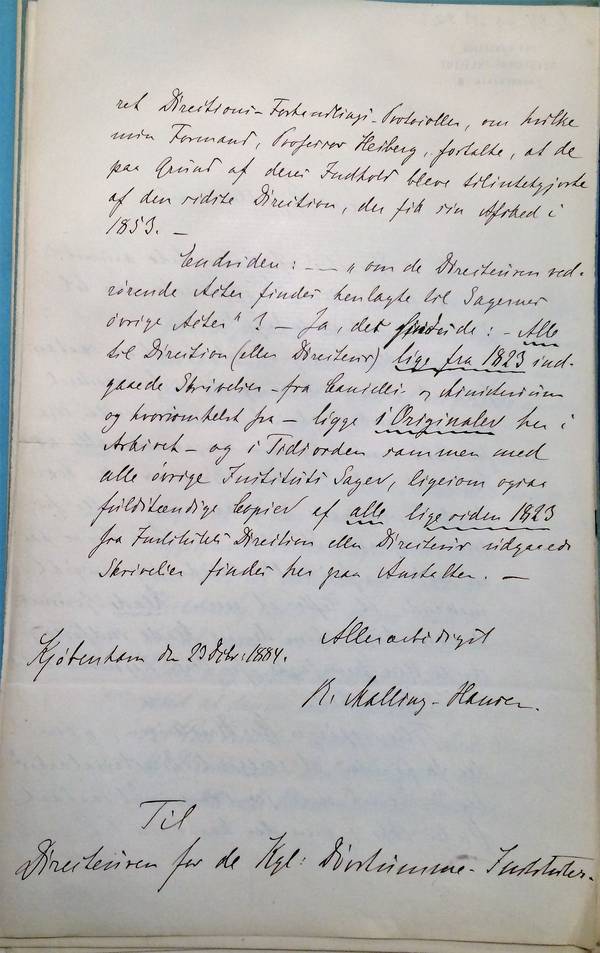 ret Directions-Forhandlings-Protocoller, om hvilke
min Formand, Professor Heiberg, fortalte, at de
paa Grund af deres Indhold bleve tilintetgjorte
af den sidste Direction, der fik sin Afsked i
1853. —
Endvidere: — — „om de Directeuren ved-
rørende Acter findes henlagte til Sagernes
øvrige Acter"? — Ja, det : — Alle
til Direction (eller Directeur) lige fra 1823 ind-
gaaede Skrivelser — fra Cancelli og Ministerium
og hvorsomhelst fra — ligge i Originaler her i
Arkivet — og i Tidsorden sammen med
alle øvrige Instituts Sager, ligesom ogsaa
fuldstændige Copier af alle lige siden 1823
fra Institutets Direction eller Directeur udgaaede
Skrivelser findes her paa Anstalten. —
Allerærbødigst
Kjøbenhavn den 23 : 1884.
R. Malling-Hansen.
Til
Directeuren for de Kgl: Døvstumme-Instituter.